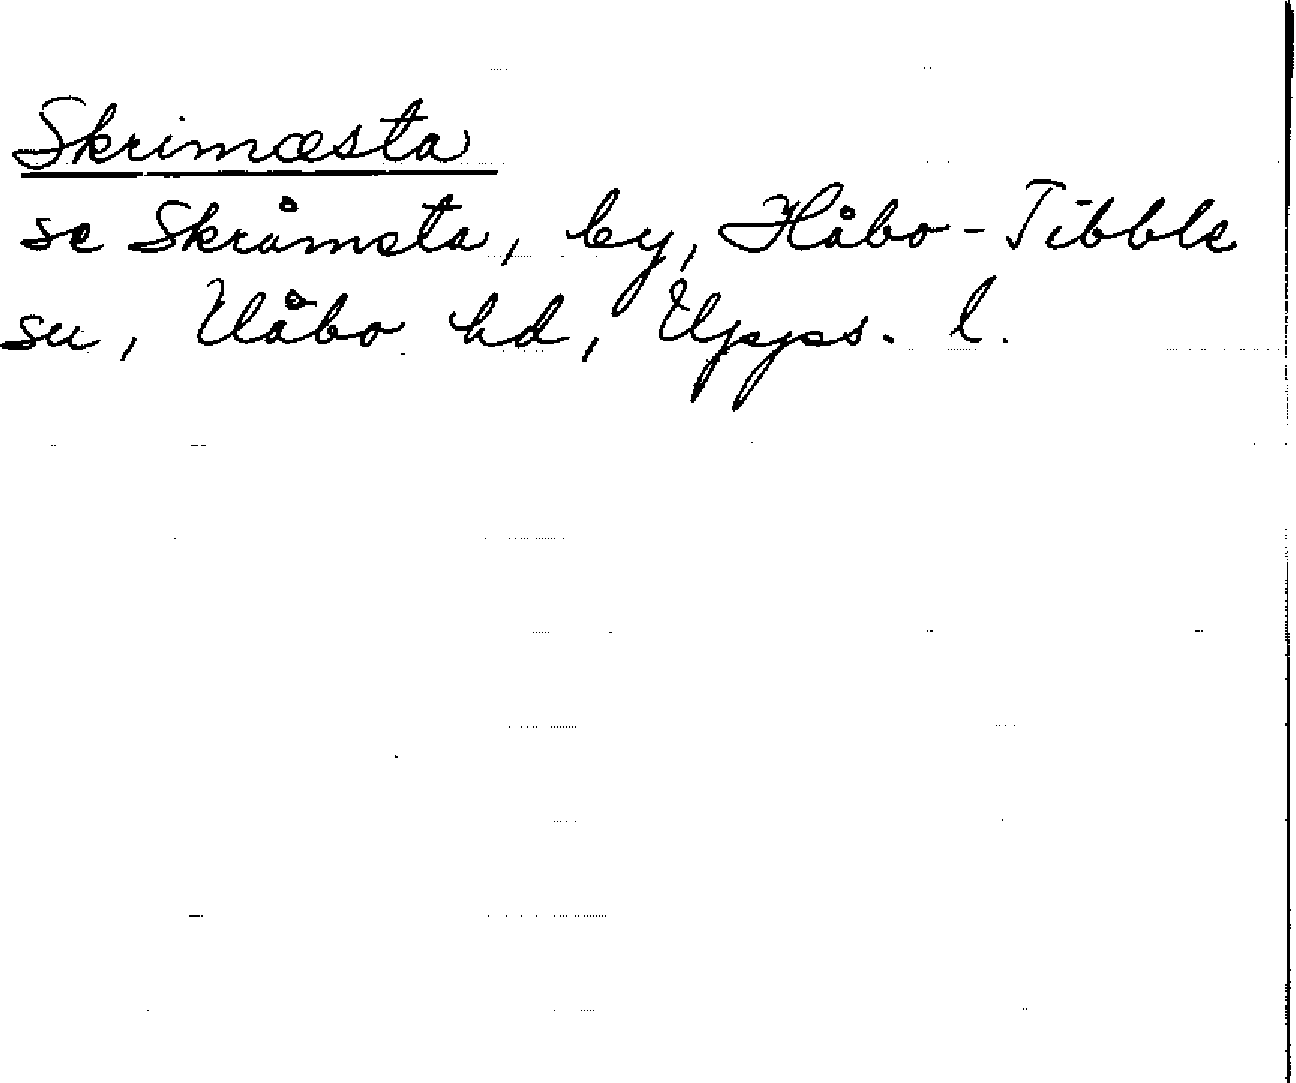 Skrimæsta
se Skråmsta, by, Håbo-Tibble
sn, Håbo hd, Upps. l.